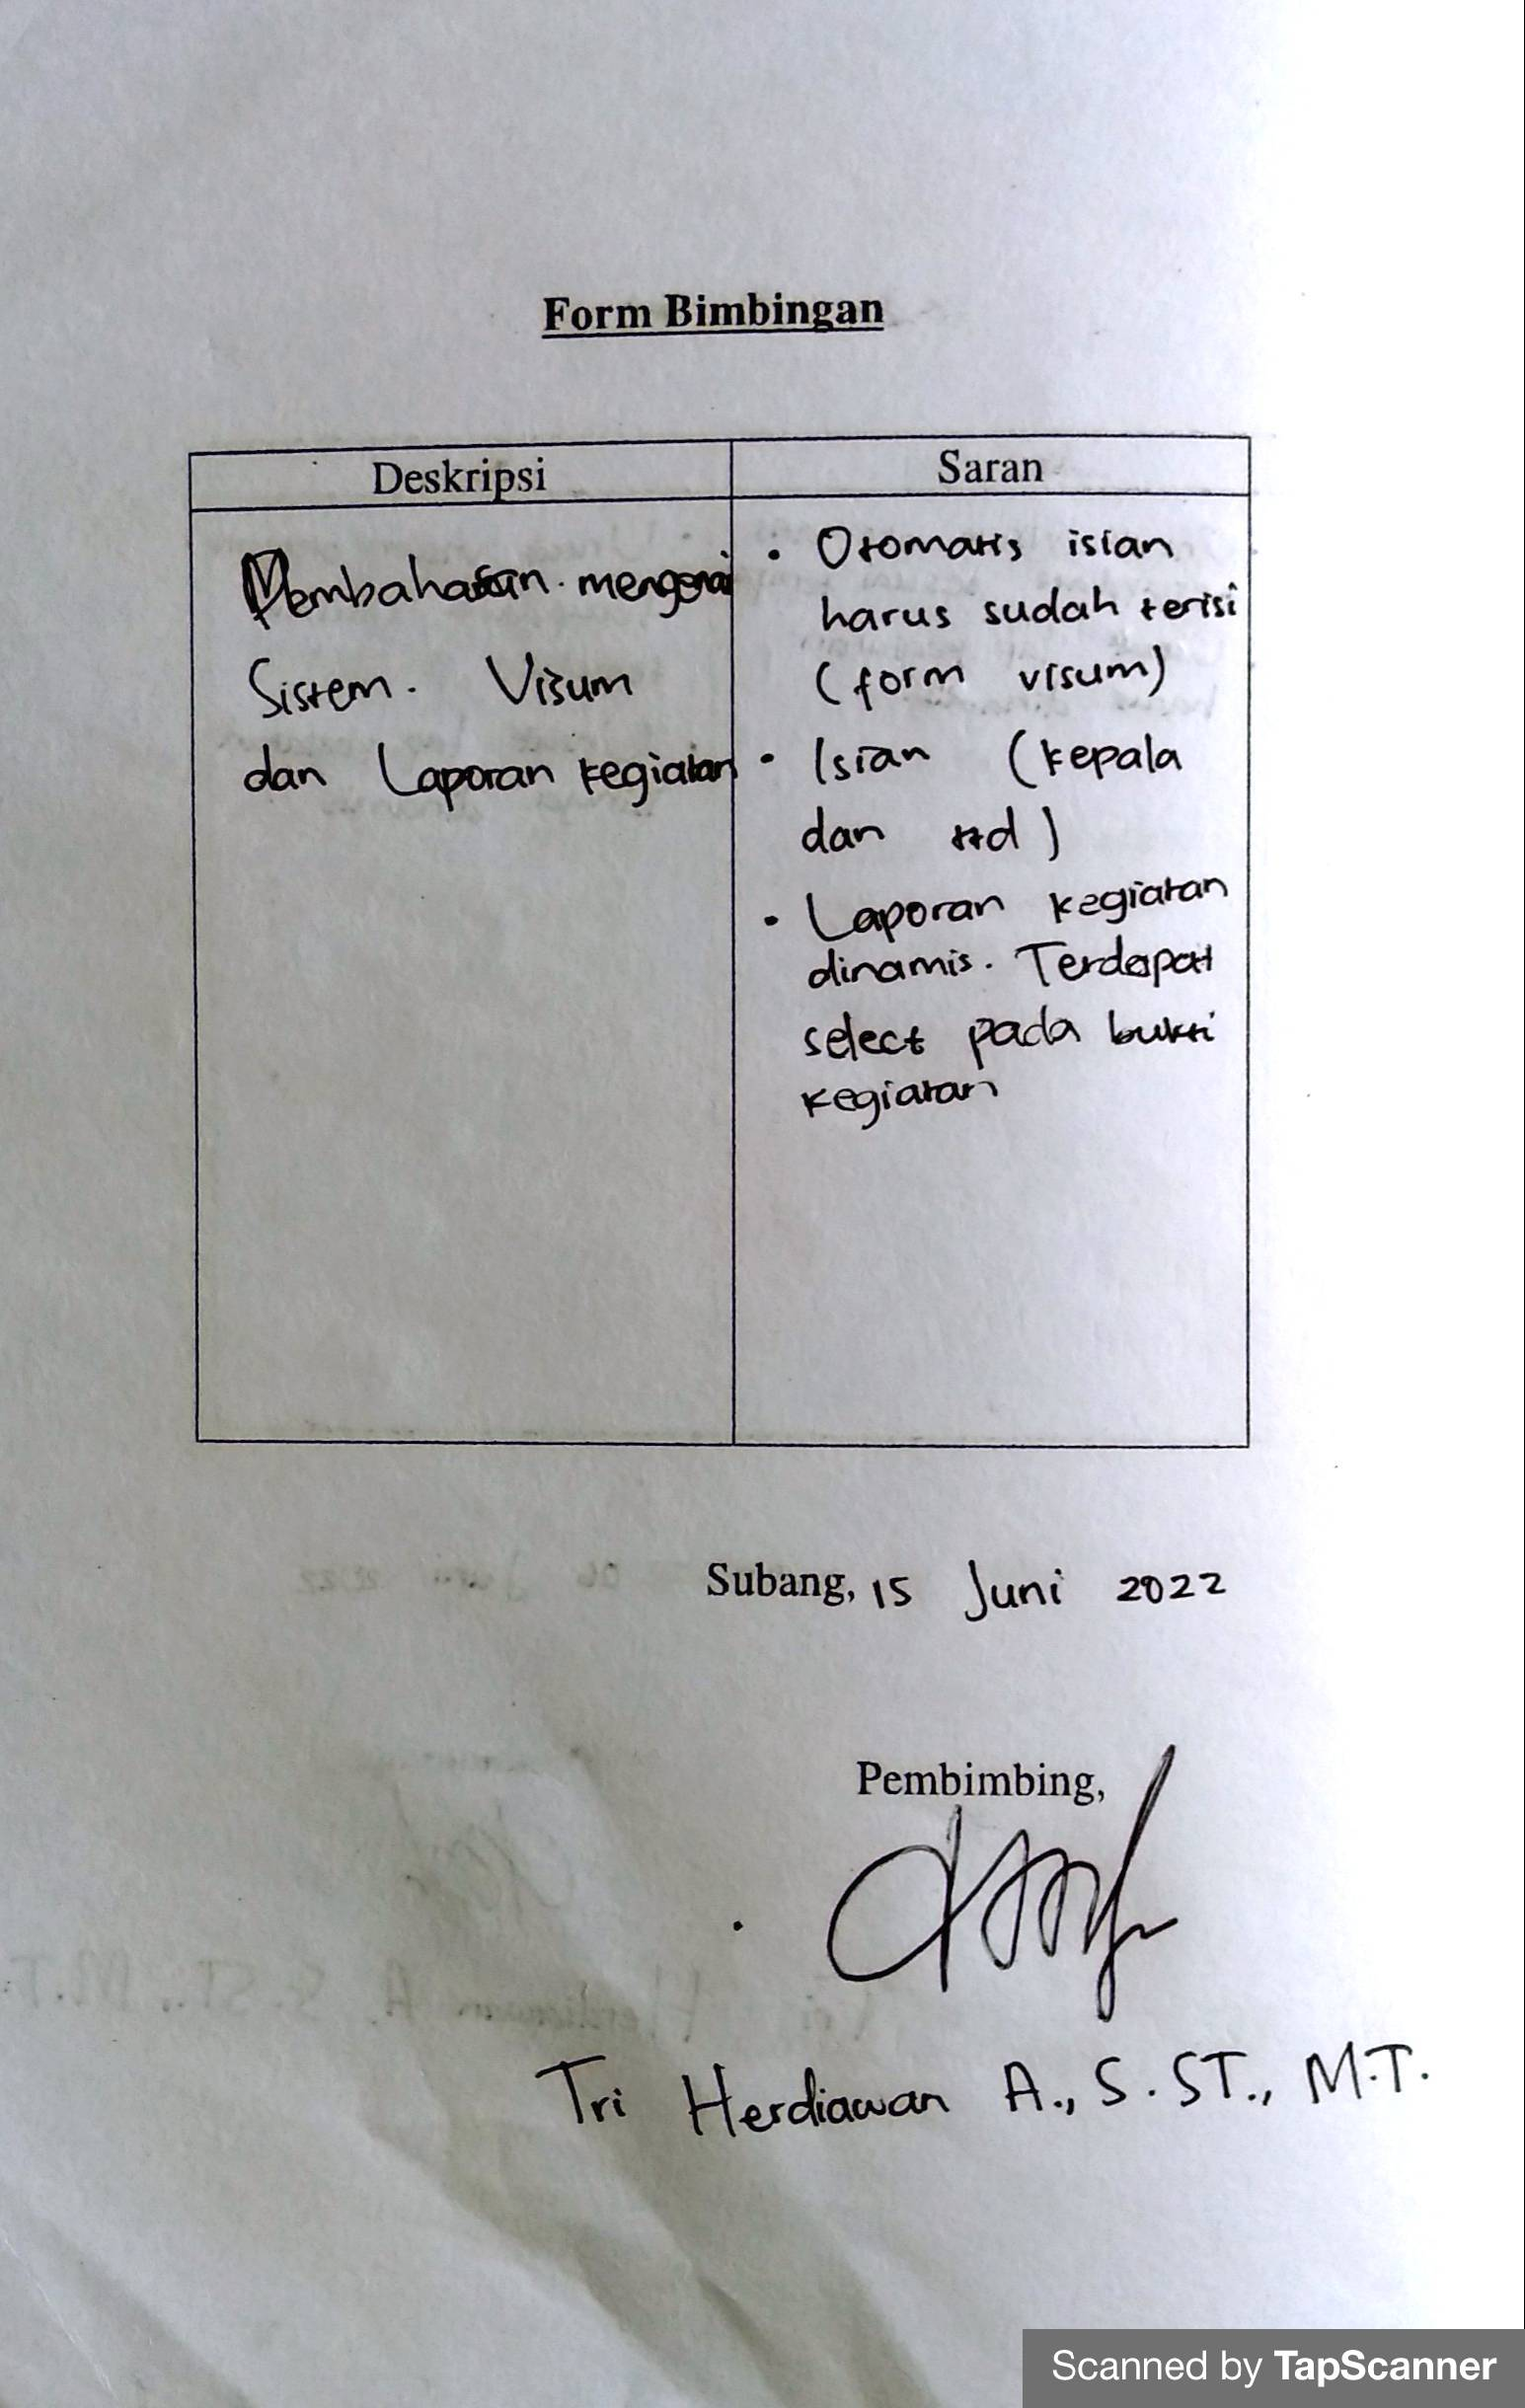 Form Bimbingan
Deskripsi
Saran
Pembahasan mengenai
Sistem. Visum
dan Laporan kegiatan
• Otomatis isian
harus sudah terisi
(form visum)
• Isian (kepala
dan ttd)
• Laporan kegiatan
dinamis. Terdapat
select pada bukti
kegiatan
Subang, 15 Juni 2022
Pembimbing,
Tri Herdiawan A., S.ST., M.T.
Scanned by TapScanner